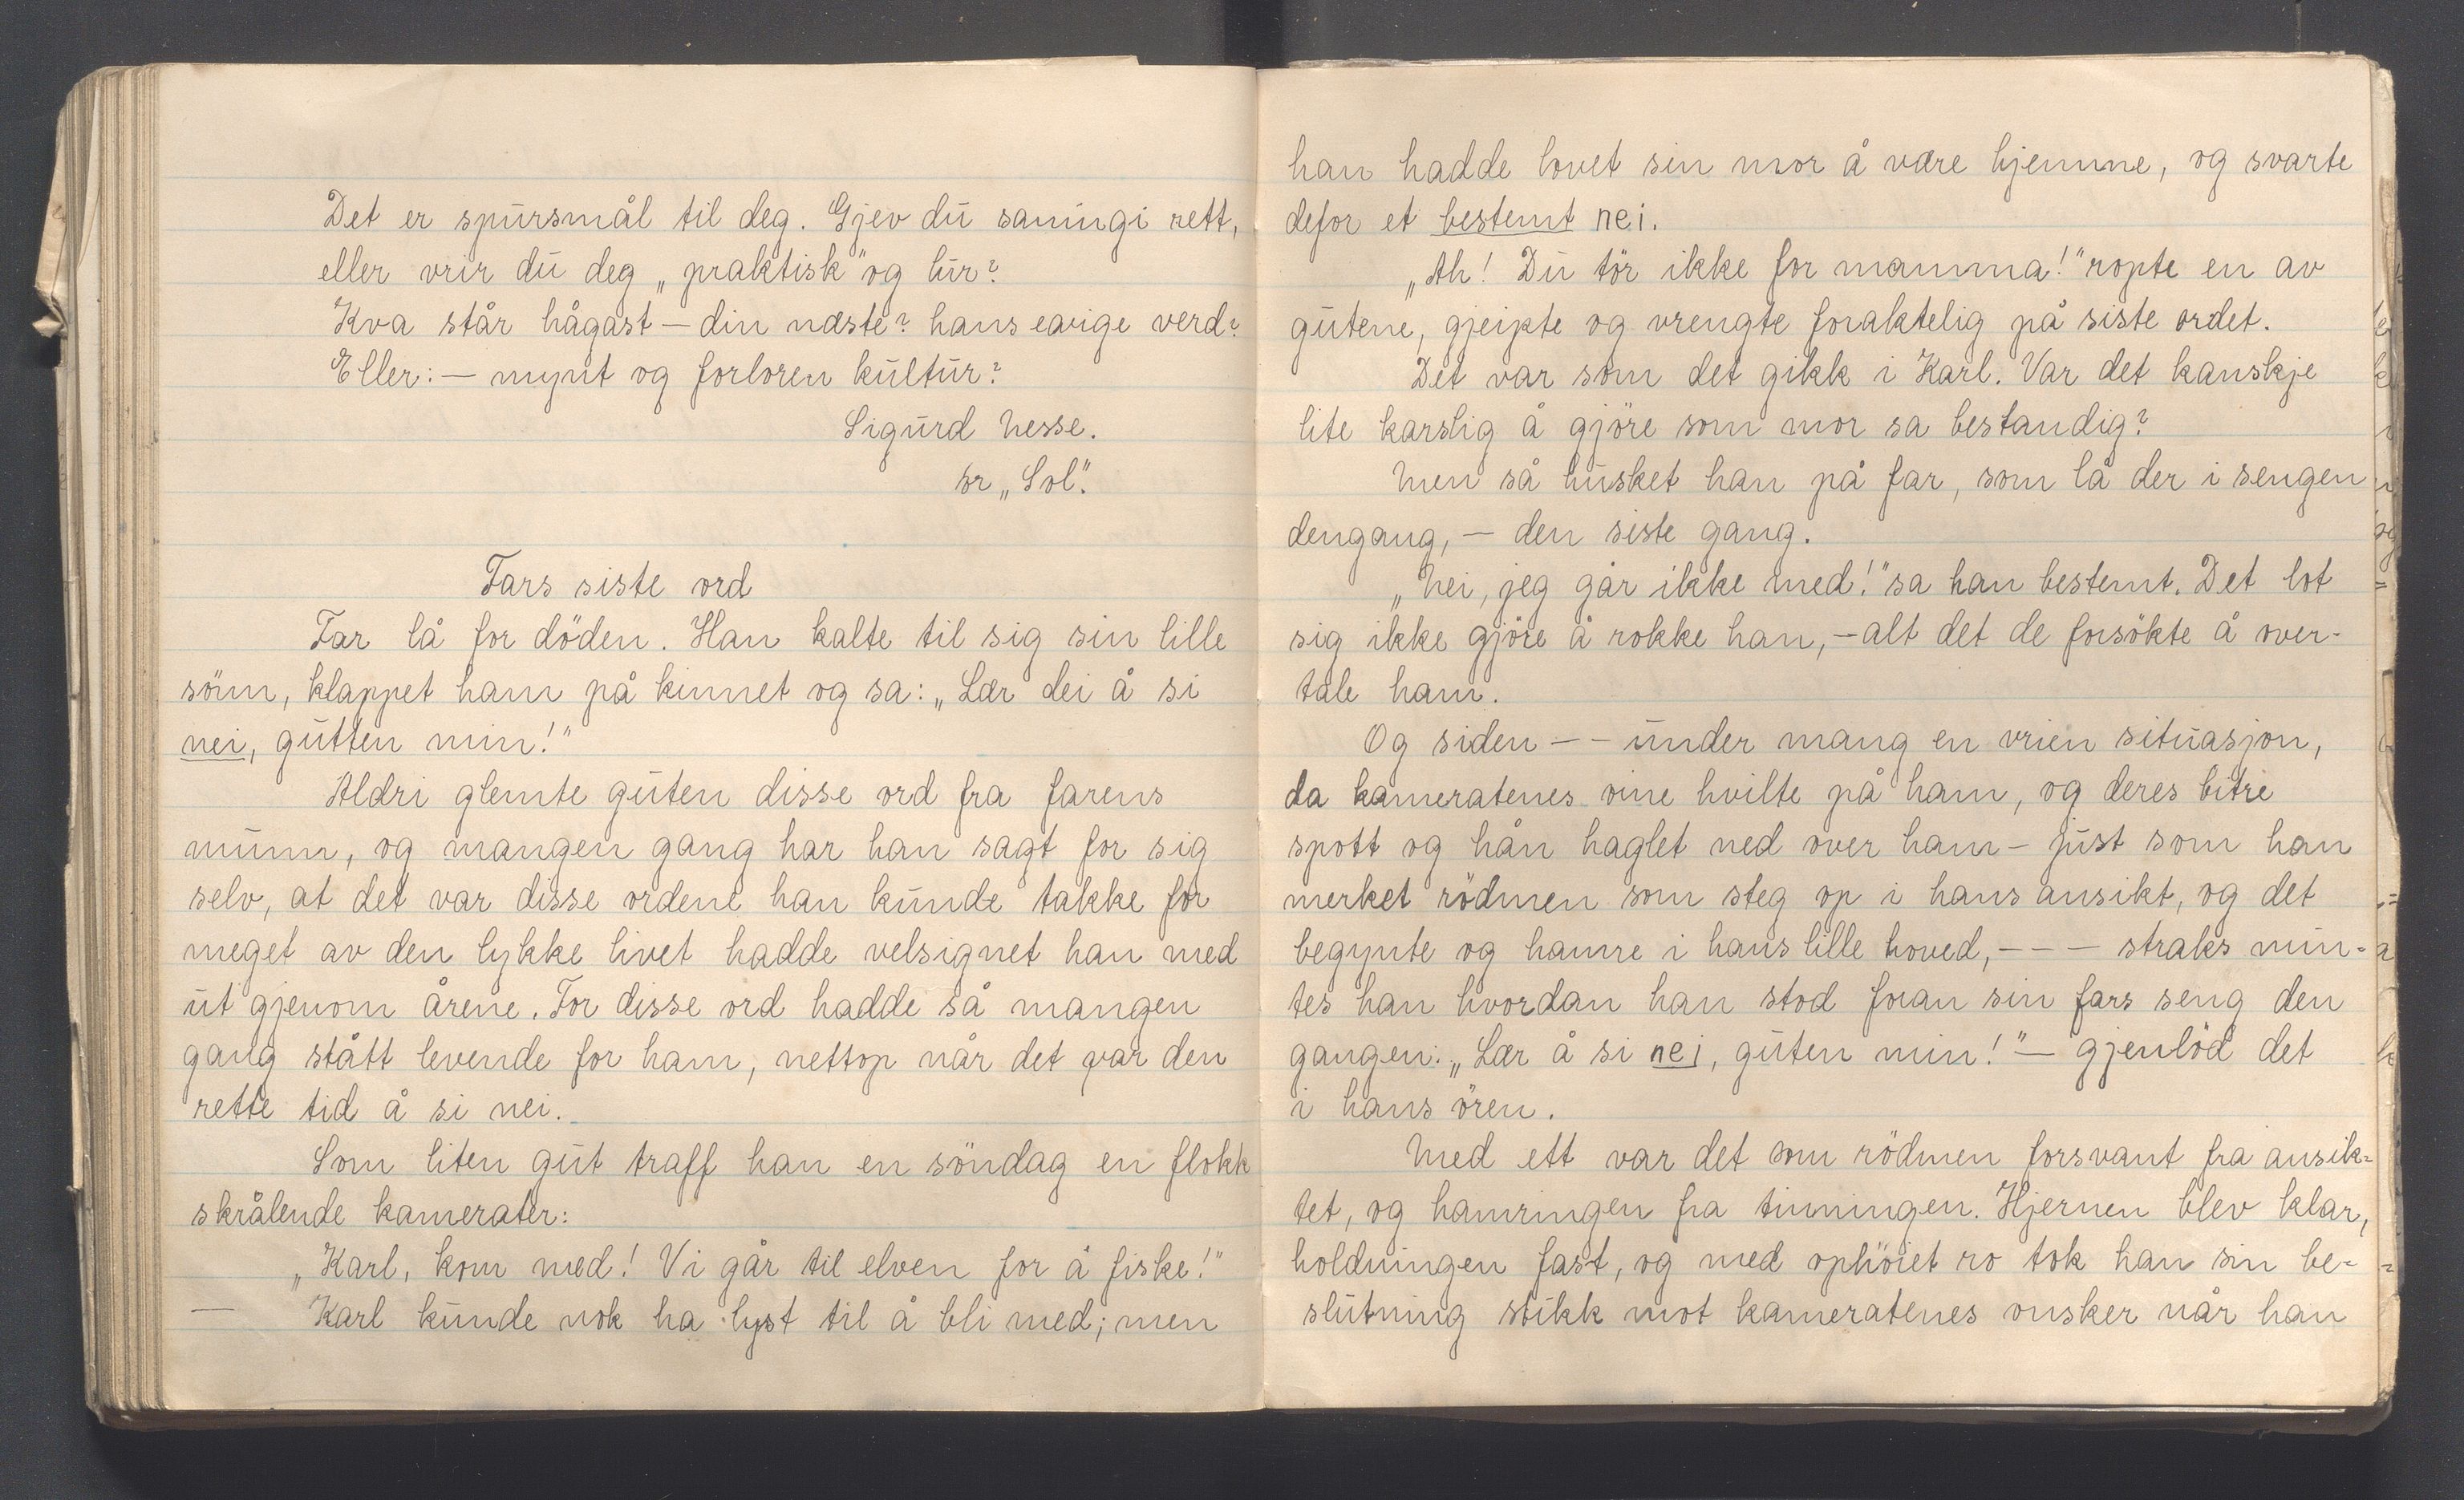 Det er spursmål til deg. Gjev du sanningi rett,
eller vrir du deg „praktisk" og lur?
Kva står hågast — din næste? hans eavige verd?
Eller: — mynt og forloren kultur?
Sigurd Nesse.
or „Sol".
Fars siste ord
Far lå for döden. Han kalte til sig sin lille
sönn, klappet ham på kinnet og sa: „Lær dei å si
nei, gutten min!"
Aldri glemte guten disse ord fra farens
munn, og mangen gang har han sagt for sig
selv, at det var disse ordene han kunde takke for
meget av den lykke livet hadde velsignet han med
ut gjenom årene. For disse ord hadde så mangen
gang stått levende for ham, nettop når det var den
rette tid å si nei.
Som liten gut traff han en söndag en flokk
skrålende kamerater:
„Karl, kom med! Vi går til elven for å fiske!"
— Karl kunde nok ha lyst til å bli med; men
han hadde lovet sin mor å være hjemme, og svarte
defor et bestemt nei.
„Ah! Du tör ikke for mamma!" ropte en av
gutene, gjeipte og vrengte foraktelig på siste ordet.
Det var som det gikk i Karl. Var det kanskje
lite karslig å gjöre som mor sa bestandig?
Men så husket han på far, som lå der i sengen
dengang, — den siste gang.
„Nei, jeg går ikke med!" sa han bestemt. Det lot
sig ikke gjöre å rokke han, — alt det de forsökte å over-
tale ham.
Og siden — — under mang en vrien situasjon,
da kameratenes oine hvilte på ham, og deres bitre
spott og hån haglet ned over ham — just som han
merket rödmen som steg op i hans ansikt, og det
begynte og hamre i hans lille hoved, — — — straks min-
tes han hvordan han stod foran sin fars seng den
gangen: „Lær å si nei, guten min!" — gjenlöd det
i hans ören.
Med ett var det som rödmen forsvant fra ansik-
tet, og hamringen fra tinningen. Hjernen blev klar,
holdningen fast, og med ophöiet ro tok han sin be-
slutning stikk mot kameratenes onsker når han